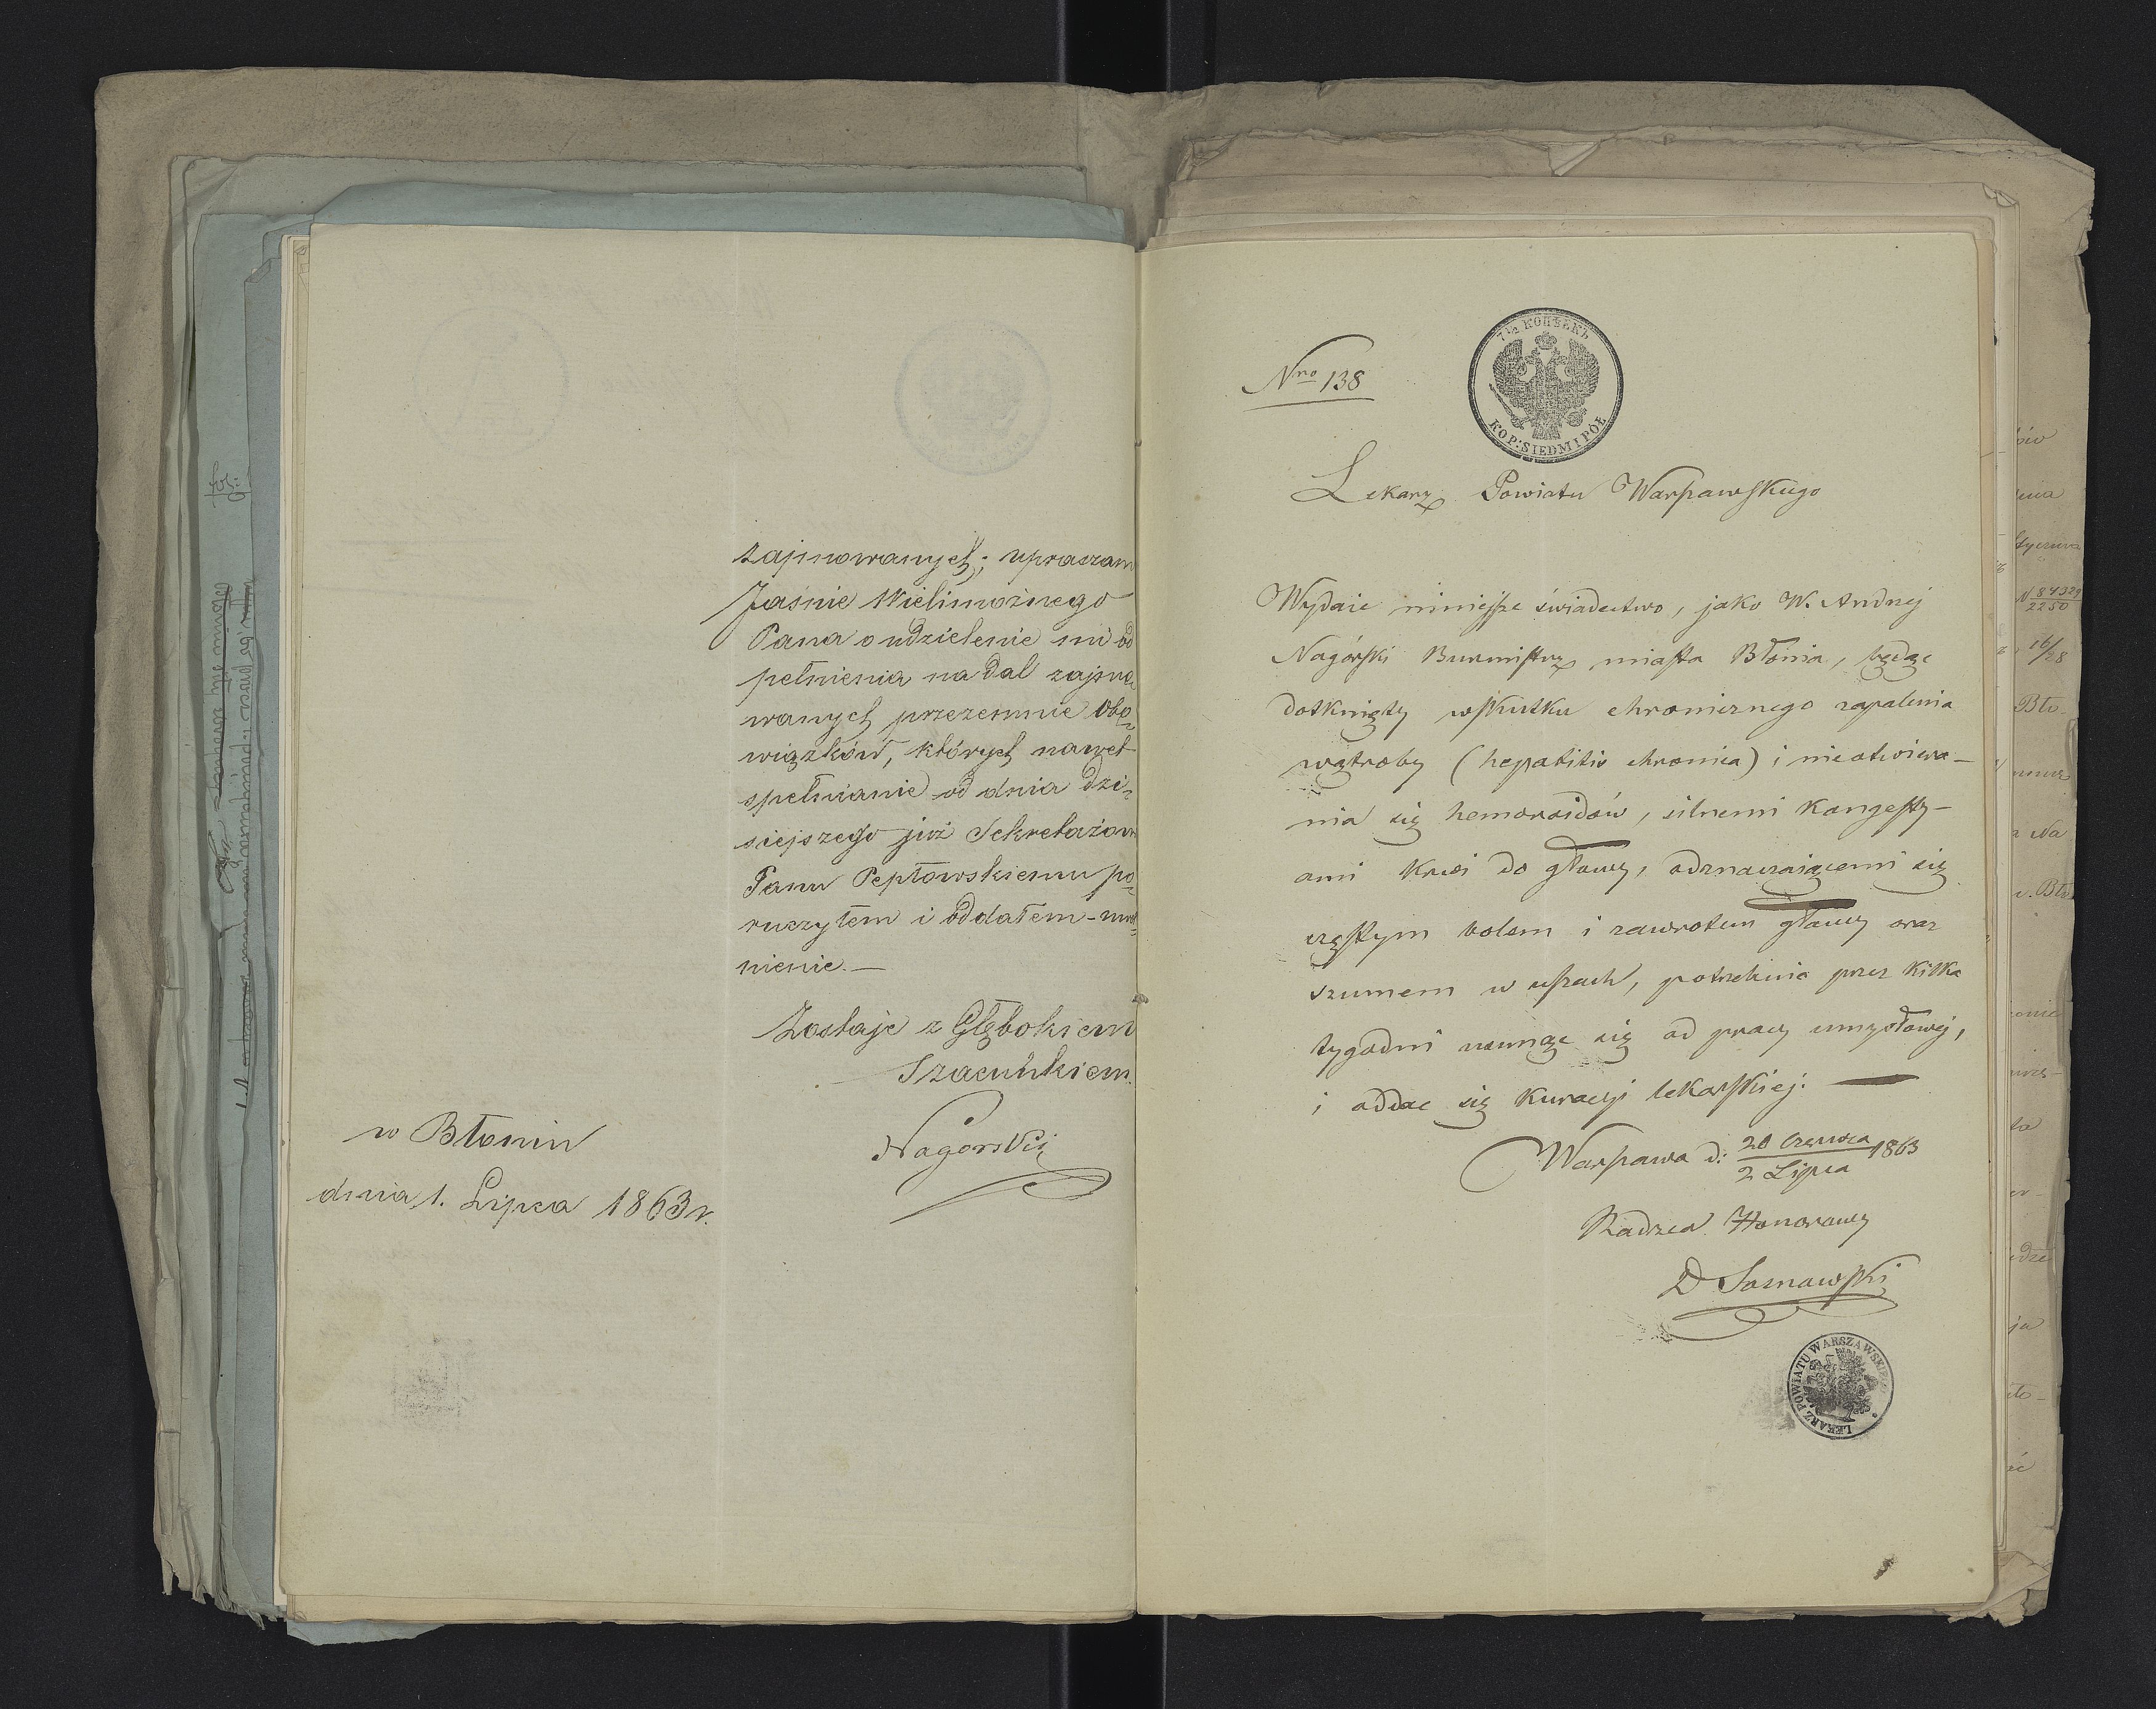 zajmowanych; upraszam
Jaśnie Wielimożnego
Pana o udzielenie mi od
pełnienia na dal zajmo
wanych przezemnie obo„
wiązków, których nawet
spełnianie od dnia dzi„
siejszego już Sekretażowi
Panu Peptowskiemu po„
ruczyłem i oddałem -
nienie. —
Zostaje z Głębokiem
Szacuńkiem
Nagórski
w Błoniu
dnia 1. Lipca 1863 r.
Nro 138
7½ КОПѢЕКЪ
KOP: SIEDM I PÓŁ
Lekarz Powiatu Warszawskiego
Wydaie niniejsze świadectwo, jako W. Andrzej
Nagórski Burmistrz miasta Błonia, będąc
dotknięty wskutku chronicznego zapalenia
wątroby (hepatitis chronica) i nieotwiera–
nia się hemoroidów, silnemi kongesty–
ami krwi do głowy, odznaczaiącemi się
częstym bolem i zawrotem głowy oraz
szumem w uszach, potrzebuie przez kilka
tygodni usunąc się od pracy umysłowej,
i oddac się kuracyi lekarskiej. —
Warszawa d: 20 Czerwca / 2 Lipca 1863
Radzca Honorowy
D Sosnowski
LEKARZ POWIATU WARSZAWSKIEGO
fol:
N 84329
2250
16/28
Bło-
Na